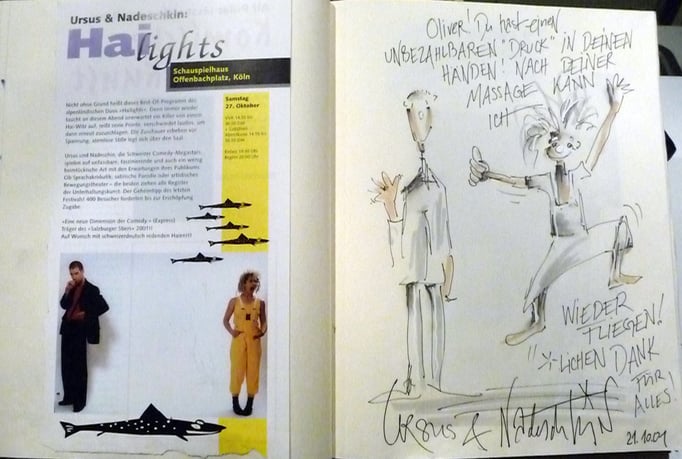 Ursus & Nadeschkin:
Hai lights
Schauspielhaus
Offenbachplatz, Köln
Nicht ohne Grund heißt dieses Best-Of-Programm des
alpenländischen Duos »Hailights«. Denn immer wieder
taucht an diesem Abend unerwartet ein Killer von einem
Hai-Witz auf, reißt seine Pointe, verschwindet lautlos, um
dann erneut zuzuschlagen. Die Zuschauer erbeben vor
Spannung, atemlose Stille legt sich über den Saal.
Ursus und Nadeschkin, die Schweizer Comedy-Megastars,
spielen auf unfassbare, faszinierende und auch ein wenig
heimtückische Art mit den Erwartungen ihres Publikums.
Ob Sprachakrobatik, satirische Parodie oder artistisches
Bewegungstheater – die beiden ziehen alle Register
der Unterhaltungskunst. Der Geheimtipp des letzten
Festivals! 400 Besucher forderten bis zur Erschöpfung
Zugabe.
»Eine neue Dimension der Comedy.« (Express)
Träger des »Salzburger Stier« 2001!!
Auf Wunsch mit schweizerdeutsch redenden Haien!!!
Samstag
27. Oktober
Oliver! Du hast einen
UNBEZAHLBAREN "DRUCK" IN DEINEN
HÄNDEN! NACH DEINER
MASSAGE KANN
ICH
WIEDER
FLIEGEN!
-LICHEN DANK
FÜR
ALLES!
Ursus & Nadeschkin
21.10.01